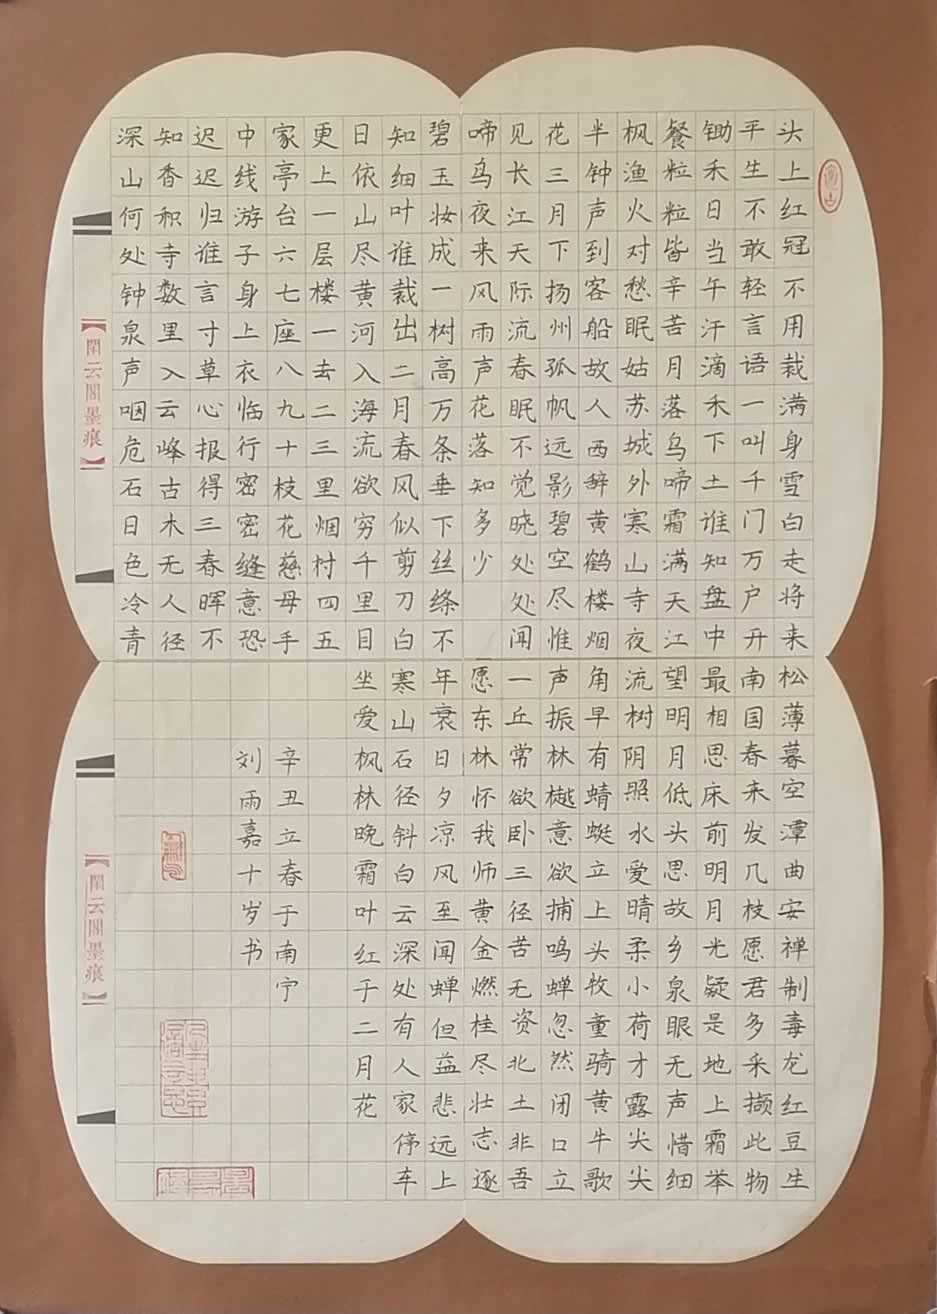 头上红冠不用栽满身雪白走将来
平生不敢轻言语一叫千门万户开
锄禾日当午汗滴禾下土谁知盘中
餐粒粒皆辛苦月落乌啼霜满天江
枫渔火对愁眠姑苏城外寒山寺夜
半钟声到客船故人西辞黄鹤楼烟
花三月下扬州孤帆远影碧空尽惟
见长江天际流春眠不觉晓处处闻
啼鸟夜来风雨声花落知多少
碧玉妆成一树高万条垂下丝绦不
知细叶谁裁出二月春风似剪刀白
日依山尽黄河入海流欲穷千里目
更上一层楼一去二三里烟村四五
家亭台六七座八九十枝花慈母手
中线游子身上衣临行密密缝意恐
迟迟归谁言寸草心报得三春晖不
知香积寺数里入云峰古木无人径
深山何处钟泉声咽危石日色冷青
【閑云閣墨痕】
松薄暮空潭曲安禅制毒龙红豆生
南国春来发几枝愿君多采撷此物
最相思床前明月光疑是地上霜举
望明月低头思故乡泉眼无声惜细
流树阴照水爱晴柔小荷才露尖尖
角早有蜻蜓立上头牧童骑黄牛歌
声振林樾意欲捕鸣蝉忽然闭口立
一丘常欲卧三径苦无资北土非吾
愿东林怀我师黄金燃桂尽壮志逐
年衰日夕凉风至闻蝉但益悲远上
寒山石径斜白云深处有人家停车
坐爱枫林晚霜叶红于二月花
辛丑立春于南宁
刘雨嘉十岁书
【閑云閣墨痕】